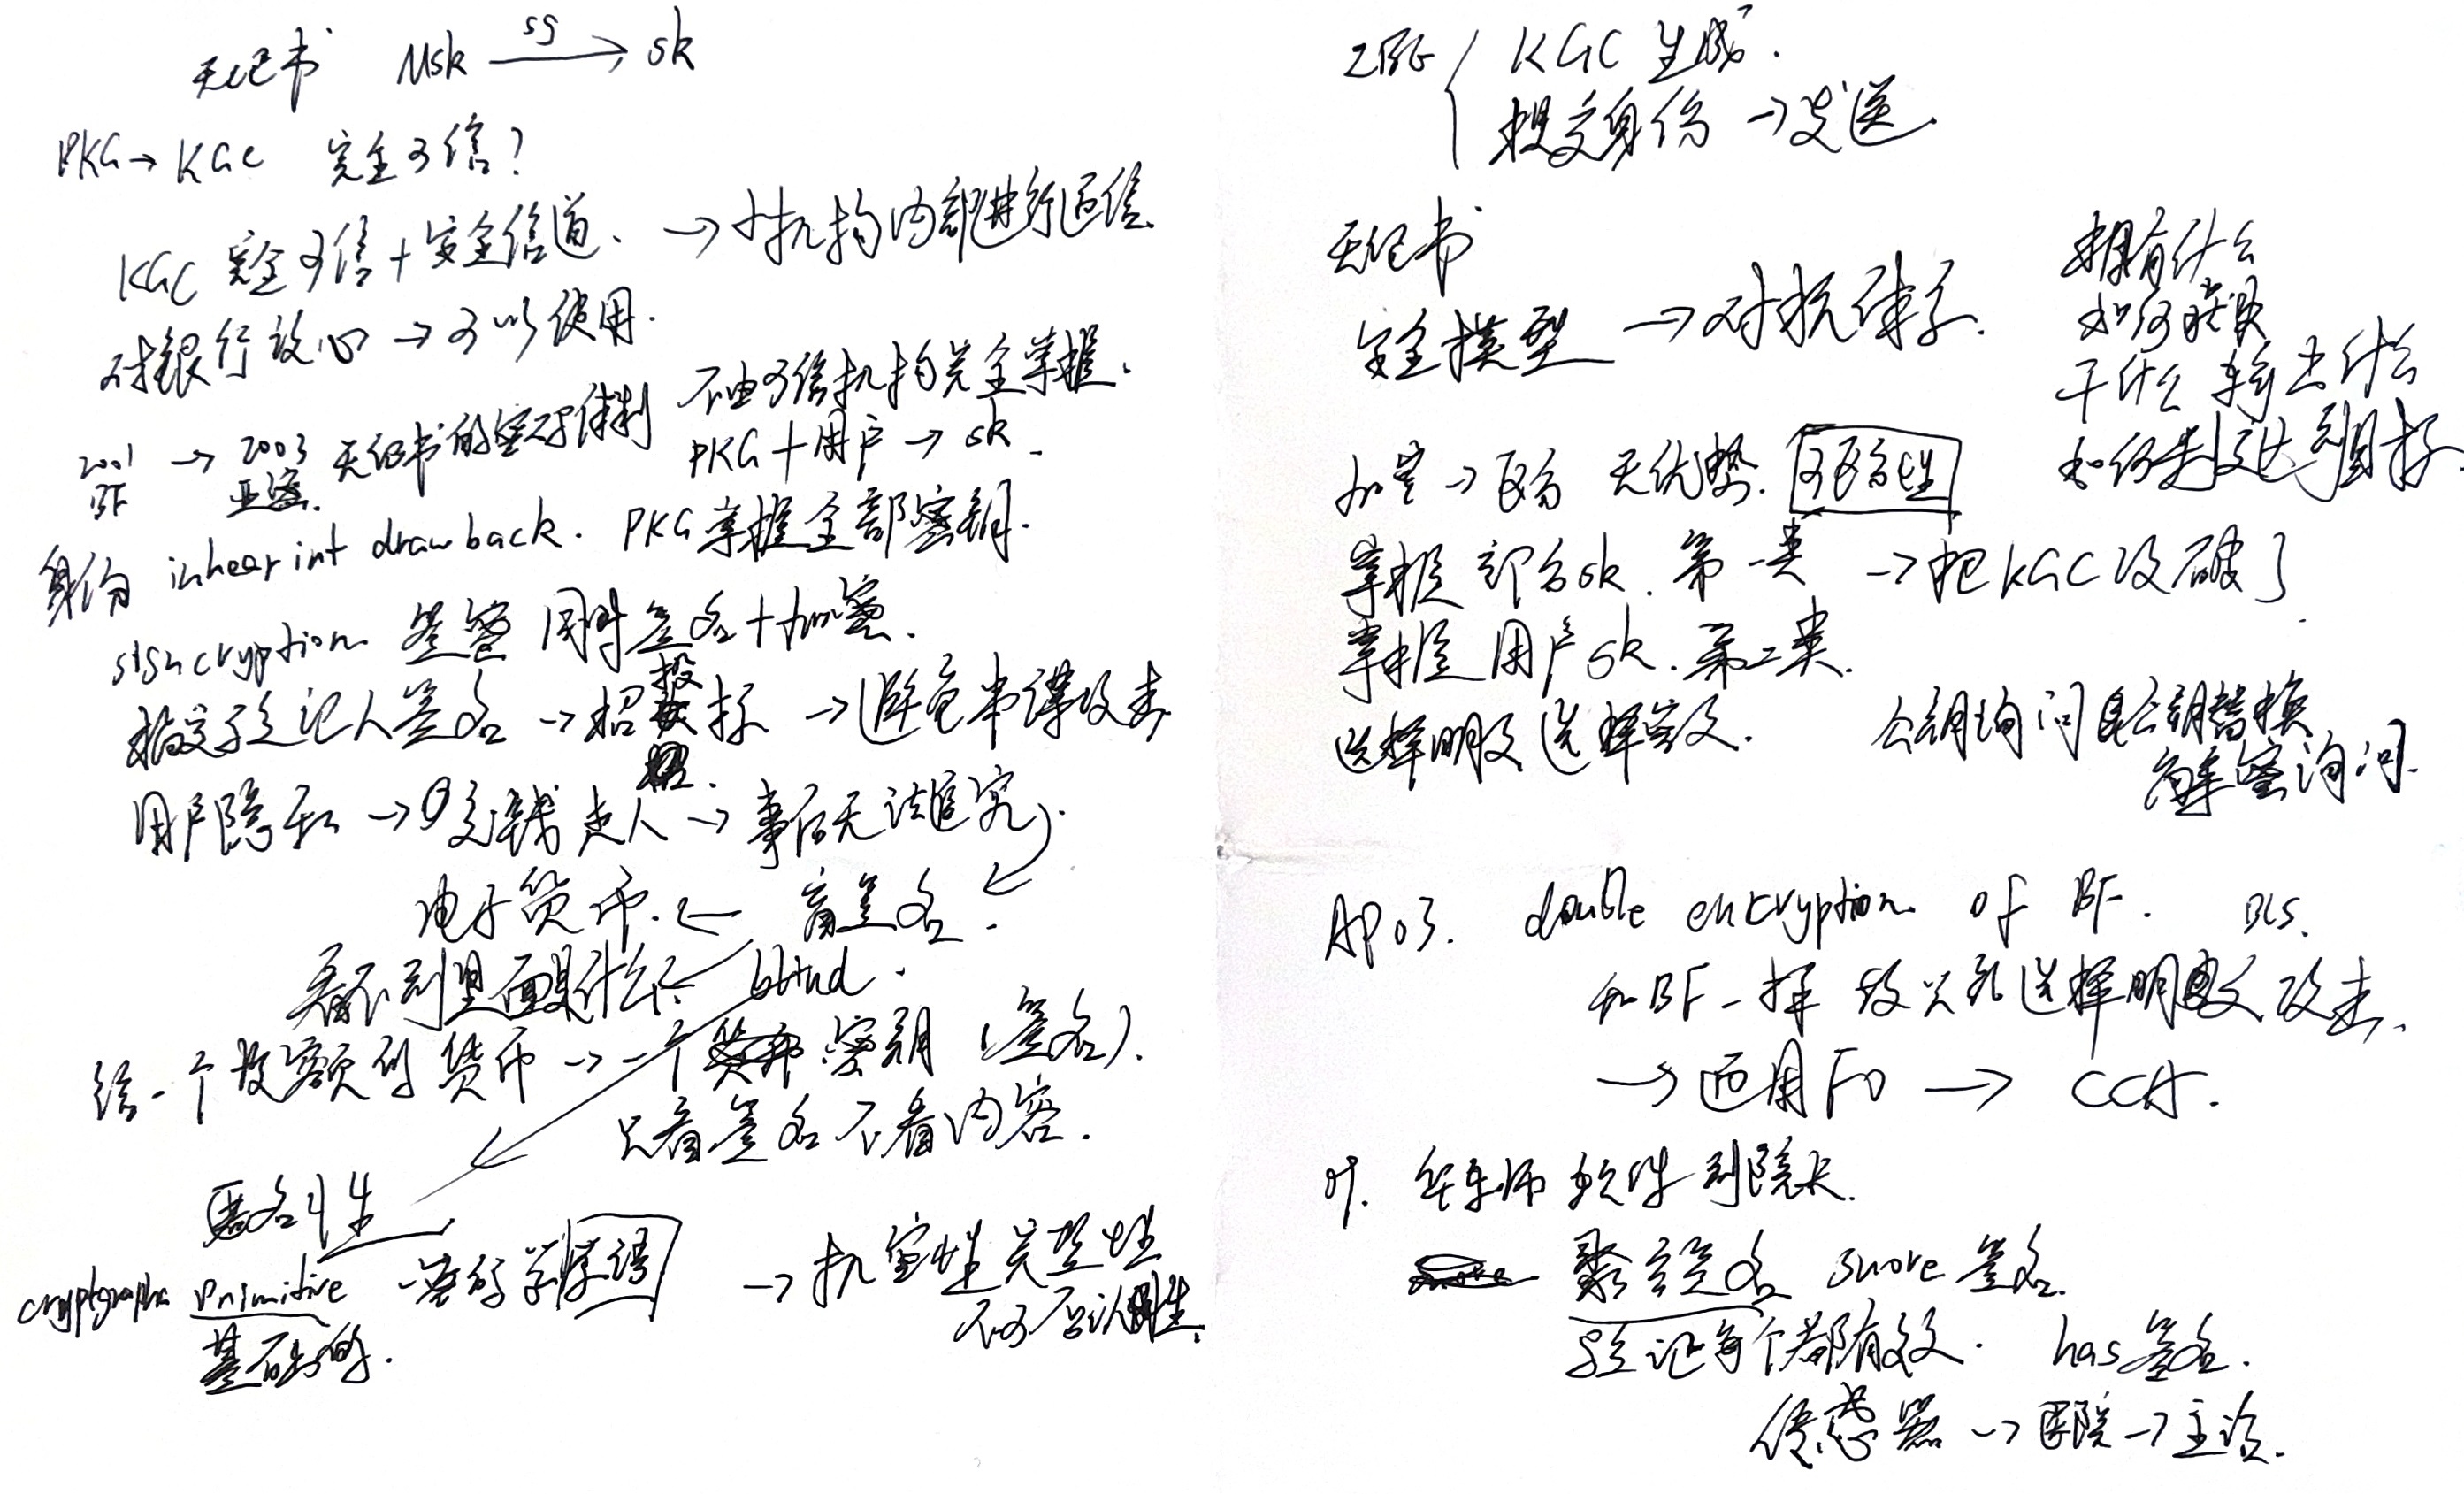 无证书 Msk sg → sk
PKG → KGC 完全可信?
KGC 完全可信 + 安全信道. → 机构内部进行通信.
对银行放心 → 可以使用.
2001 BF → 2003 亚密. 无证书的密码体制 不由可信机构完全掌握. PKG + 用户 → sk.
身份 inhearint drawback. PKG 掌握全部密钥.
signcryption. 签密 同时签名 + 加密.
指定验证人签名 → 招投标 → 避免串谋攻击
用户隐私 → 交钱走人 → 事后无法追究
电子货币. ← 盲签名.
看不到里面是什么 ← blind.
给一个数额的货币 → 一个密钥 (签名).
只看签名不看内容.
匿名性
cryptographic primitive 密码学原语 → 机密性 完整性
基础的. 不可否认性.
IBE KGC 生成.
提交身份 → 发送.
无证书
安全模型 → 对抗 拥有什么
如何获取
干什么 输出什么
如何表达达到目标
加密 → 区分 无优势. 可区分性
掌握部分sk. 第一类 → 把KGC攻破了
掌握用户sk. 第二类.
选择明文 选择密文. 公钥询问 公钥替换
解密询问.
AP03. double encryption of BF. BLS.
和BF一样 仅只到选择明文攻击.
→ 运用FO → CCA.
华东师 软件 副院长.
聚合签名 snore 签名.
验证每个都有效. has签名.
传感器 → 医院 → 主治.